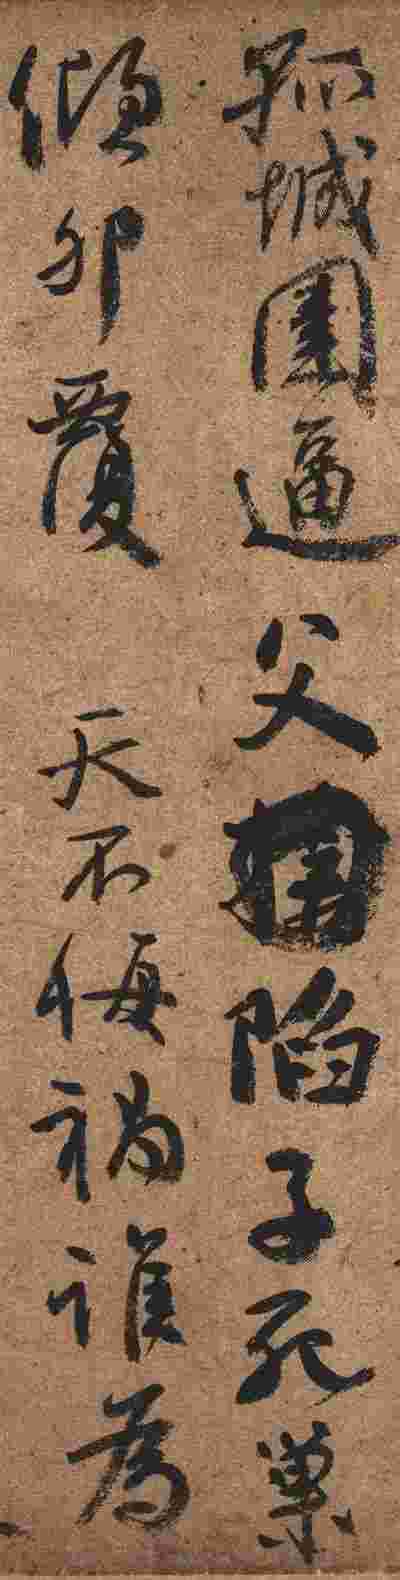 孤城圍逼父陷子死巢
傾卵覆天不悔禍誰為